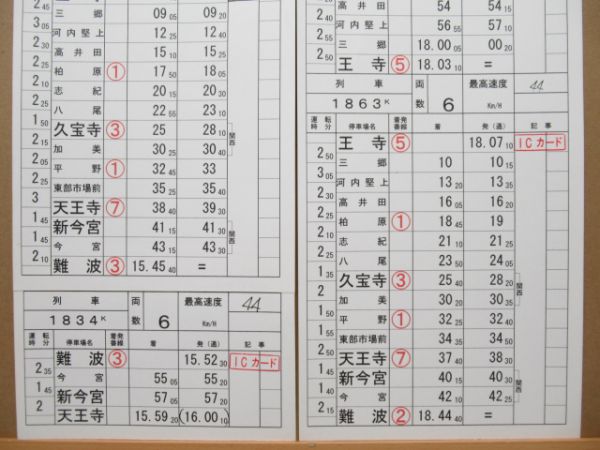 三郷 09 05 09 20
2 45
河内堅上 12 25 12 40
2 35
高井田 15 10 15 25
2 25
柏原 ① 17 50 18 05
2 10
志紀 20 15 20 30
2 25
八尾 22 55 23 10
1 50
久宝寺 ③ 25 28 10 関西
2 15
加美 30 25 30 40
2 05
平野 ① 32 45 33
2 35
東部市場前 35 25 35 40
3
天王寺 ⑦ 38 40 39 30
1 45
新今宮 41 15 41 30 関西
1 45
今宮 43 15 43 30
2 10
難波 ③ 15.45 40 =
列車 両数 最高速度 44
1834K 6 Km/H
運転時分 停車場名 着発番線 着 発(通) 記事
難波 ③ 15.52 30 ICカード
2 35
今宮 55 05 55 20
1 45
新今宮 57 05 57 20
2
天王寺 15.59 20 (16.00 10)
高井田 54 54 15
2 35
河内堅上 56 50 57 10
2 50
三郷 18.00 00 20
2 50
王寺 ⑤ 18.03 10
列車 両数 最高速度 44
1863K 6 Km/H
運転時分 停車場名 着発番線 着 発(通) 記事
王寺 ⑤ 18.07 10 ICカード
2 50
三郷 10 10 15
河内堅上 13 20 13 35
高井田 16 05 16 20
柏原 ① 18 45 19
2 10
志紀 21 10 21 25
2 25
八尾 23 50 24 05
1 35
久宝寺 ③ 25 40 28 20 関西
2
加美 30 20 30 35
1 50
平野 ① 32 25 32 40
1 55
東部市場前 34 35 34 50
2 50
天王寺 ⑦ 37 40 38 30
1 45
新今宮 40 15 40 30 関西
今宮 42 10 42 25
2 15
難波 ② 18.44 40 =